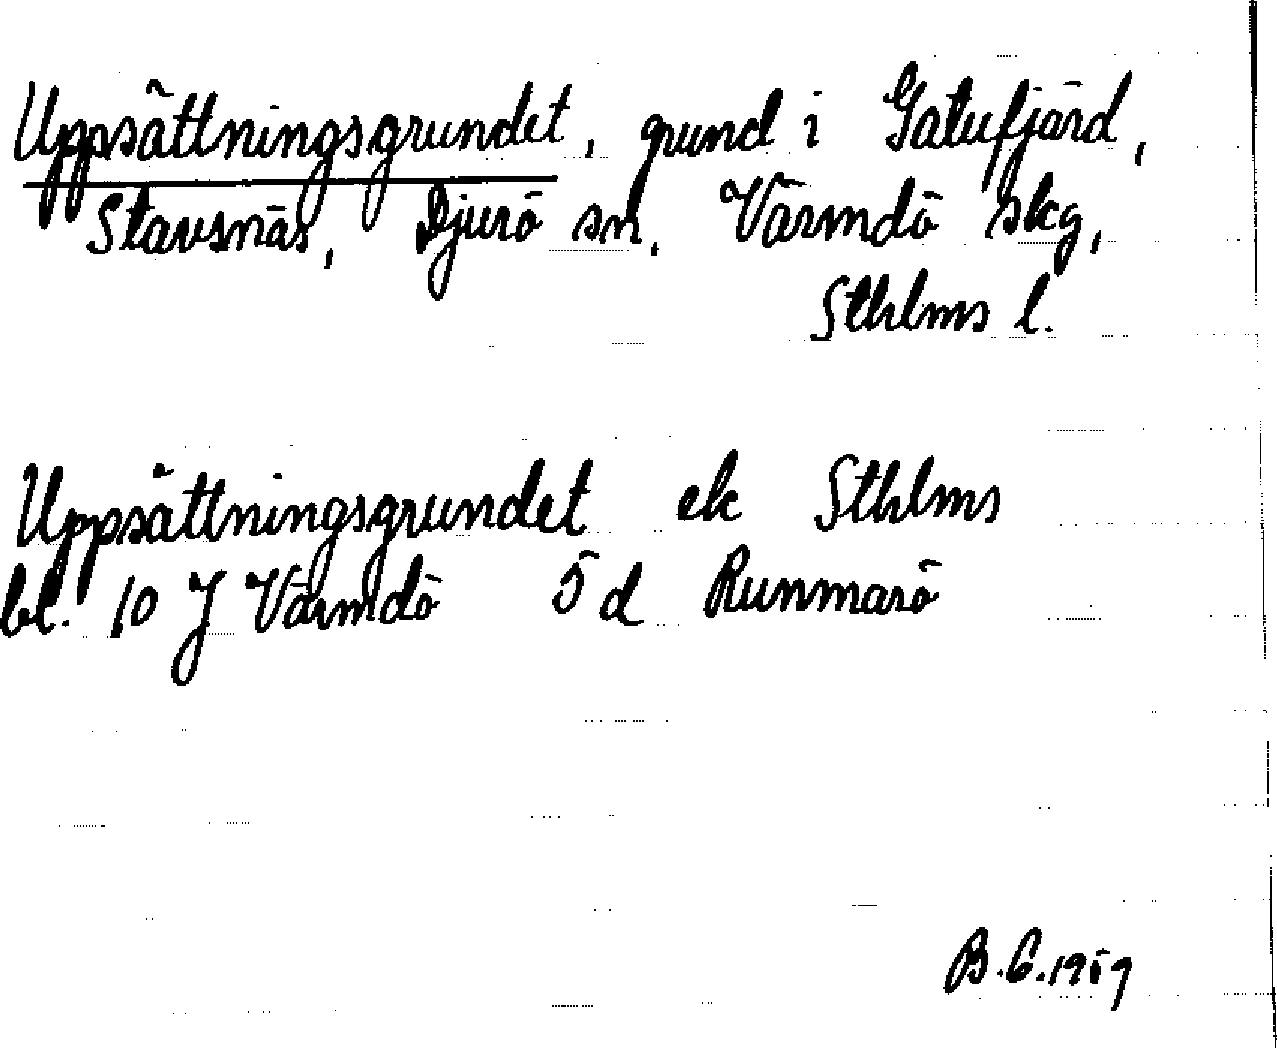 Uppsättningsgrundet, grund i Gatufjärd,
Stavsnäs, Djurö sn, Värmdö skg,
Sthlms l.
Uppsättningsgrundet ek Sthlms
bl. 10 J Värmdö 5 d Runmarö
B.G.1959